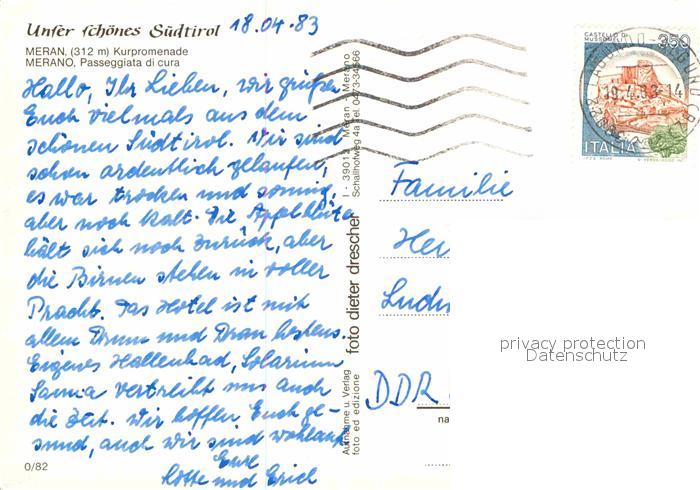 Unser schönes Südtirol 18.04.83
MERAN, (312 m) Kurpromenade
MERANO, Passeggiata di cura
Hallo, Ihr Lieben, wir grüßen
Euch vielmals aus dem
schönen Südtirol. Wir sind
schon ordentlich gelaufen,
es war trocken und sonnig,
aber noch kalt. Die Apfelblüte
hält sich noch zurück, aber
die Birnen stehen in voller
Pracht. Das Hotel ist mit
allem Drum und Dran bestens.
Eigenes Hallenbad, Solarium
Sauna vertreibt uns auch
die Zeit. Wir hoffen Euch ge-
sund, auch wir sind wohlauf
Eure
Lotte und Erich
0/82
Aufnahme u. Verlag
foto ed edizione
foto dieter drescher
I - 39012 Meran - Merano
Schallhofweg 4a Tel. 0473-34566
CASTELLO DI
MUSSOMELI
350
19.4.83-14
ITALIA
Familie
Hei
Ludw
DDR
na
privacy protection
Datenschutz